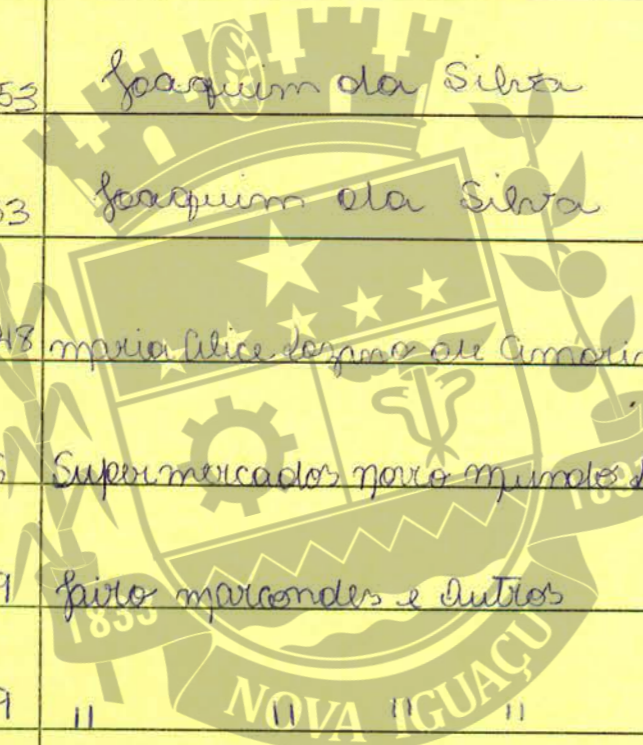 53 Joaquim da Silva
53 Joaquim da Silva
48 maria Alice Lozano de Amorim
Supermercados novo mundo
9 Jairo marcondes e Outros
9 " " " "
1833
NOVA IGUAÇU